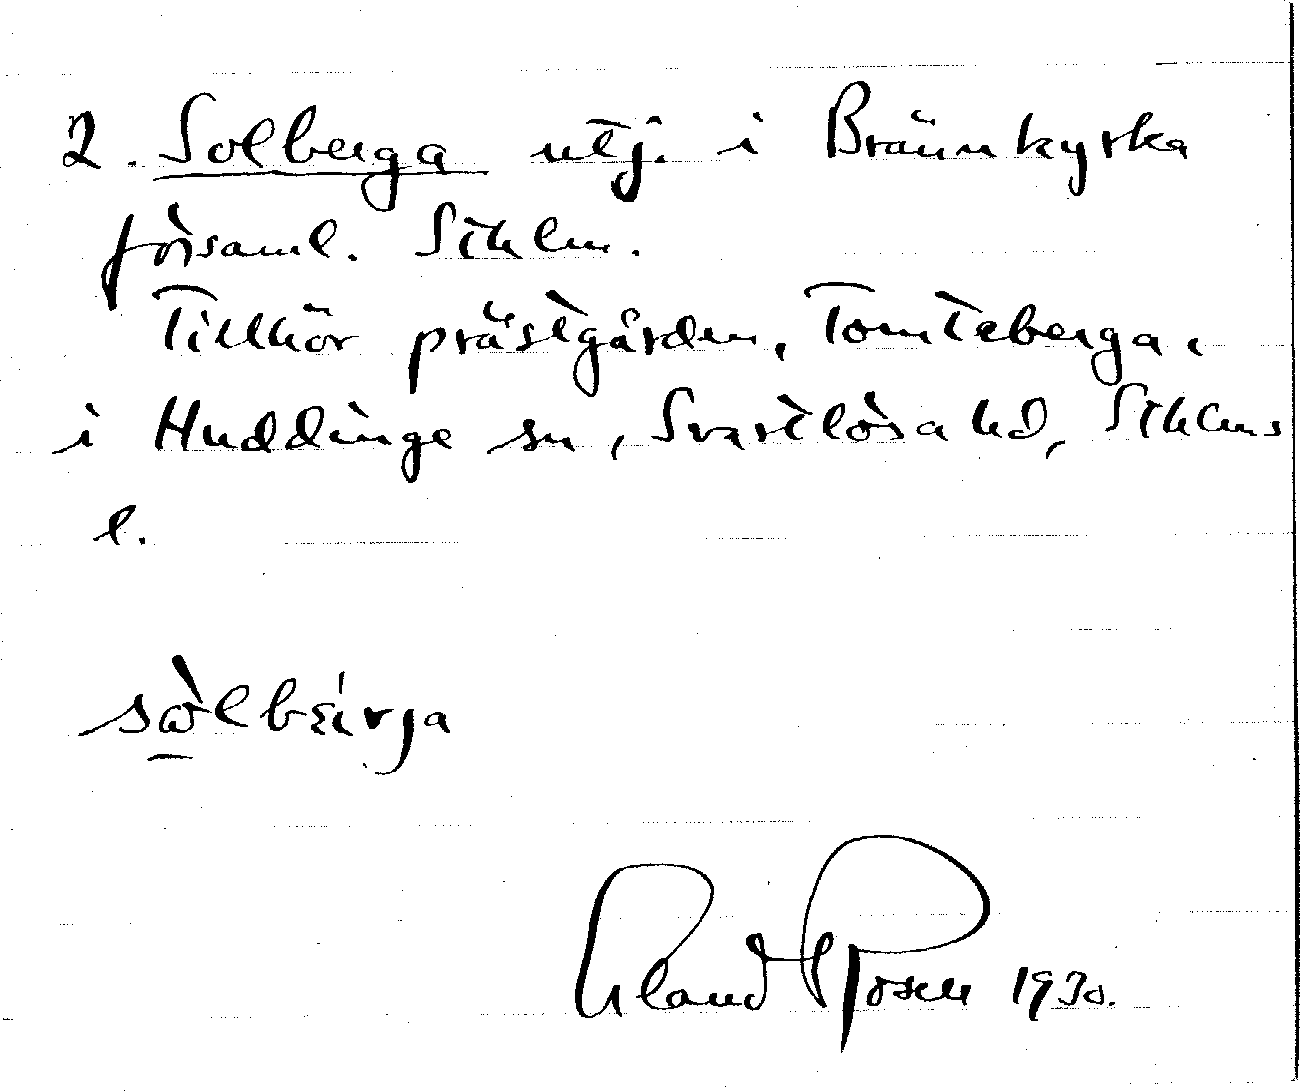 2. Solberga utj. i Brännkyrka
församl. Sthlm.
Tillhör prästgården, Tomteberga,
i Huddinge sn, Svartlösa hd, Sthlms
l.
Roland Rosell 1930.